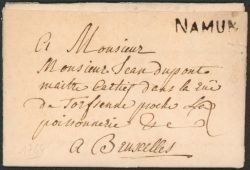 NAMUR
A Monsieur
Monsieur Jean dupont
maitre dans la rue
de proche La
poissonnerie
a Bruxelles